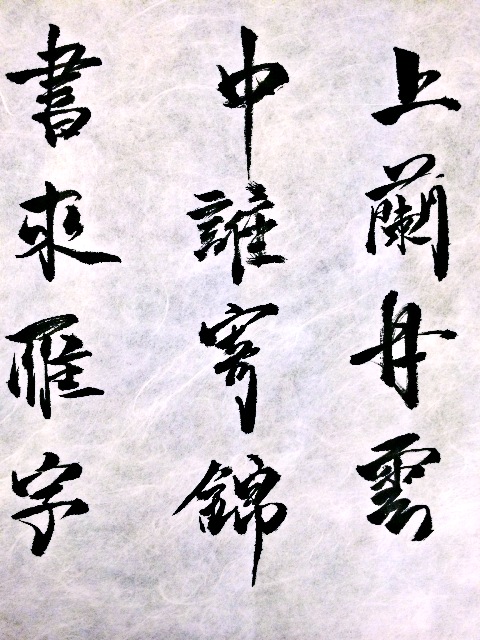 上蘭舟雲
中誰寄錦
書來雁字